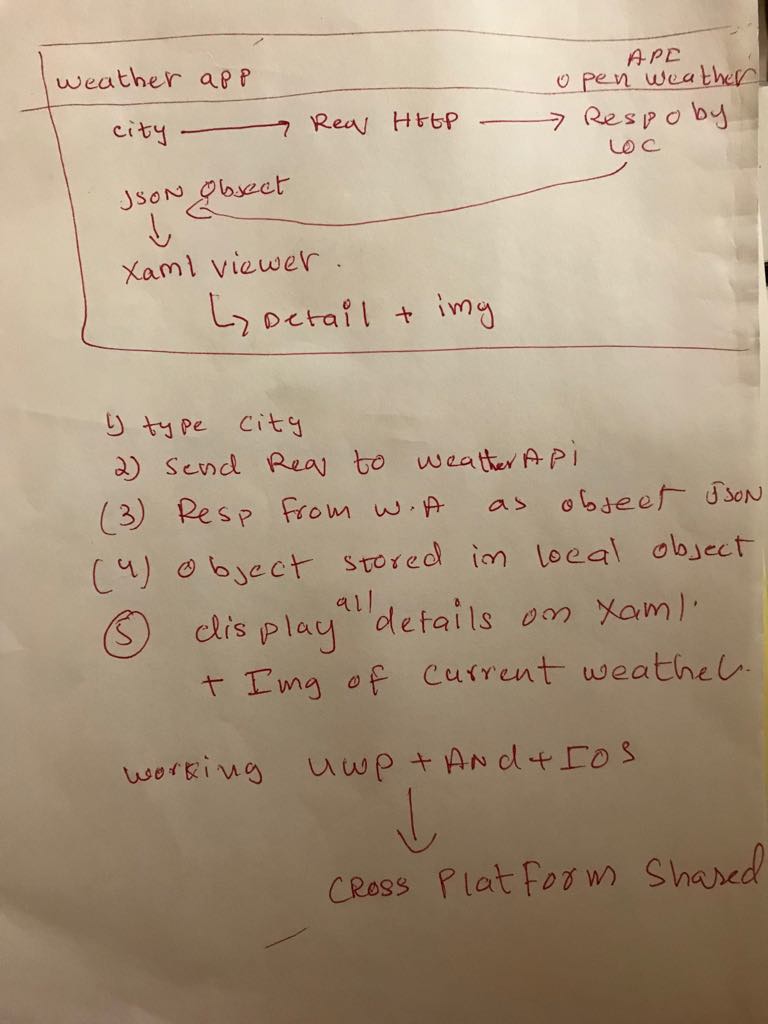 weather app
API
open weather
city → Req HTTP → Respo by
LOC
JSON object
↓
Xaml viewer.
↳ Detail + img
1) type city
2) Send Req to weather API
(3) Resp from W.A as object JSON
(4) object stored in local object
(5) display all details on Xaml.
+ Img of current weather.
working UWP + ANd + IOS
↓
CROSS Platform Shared